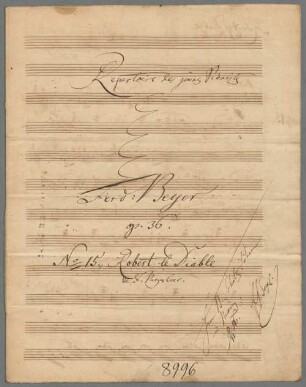 Repertoire des jeunes Pianistes
Ferd: Beyer
op. 36.
No 15. Robert le Diable
de G. Meyerbeer
8996